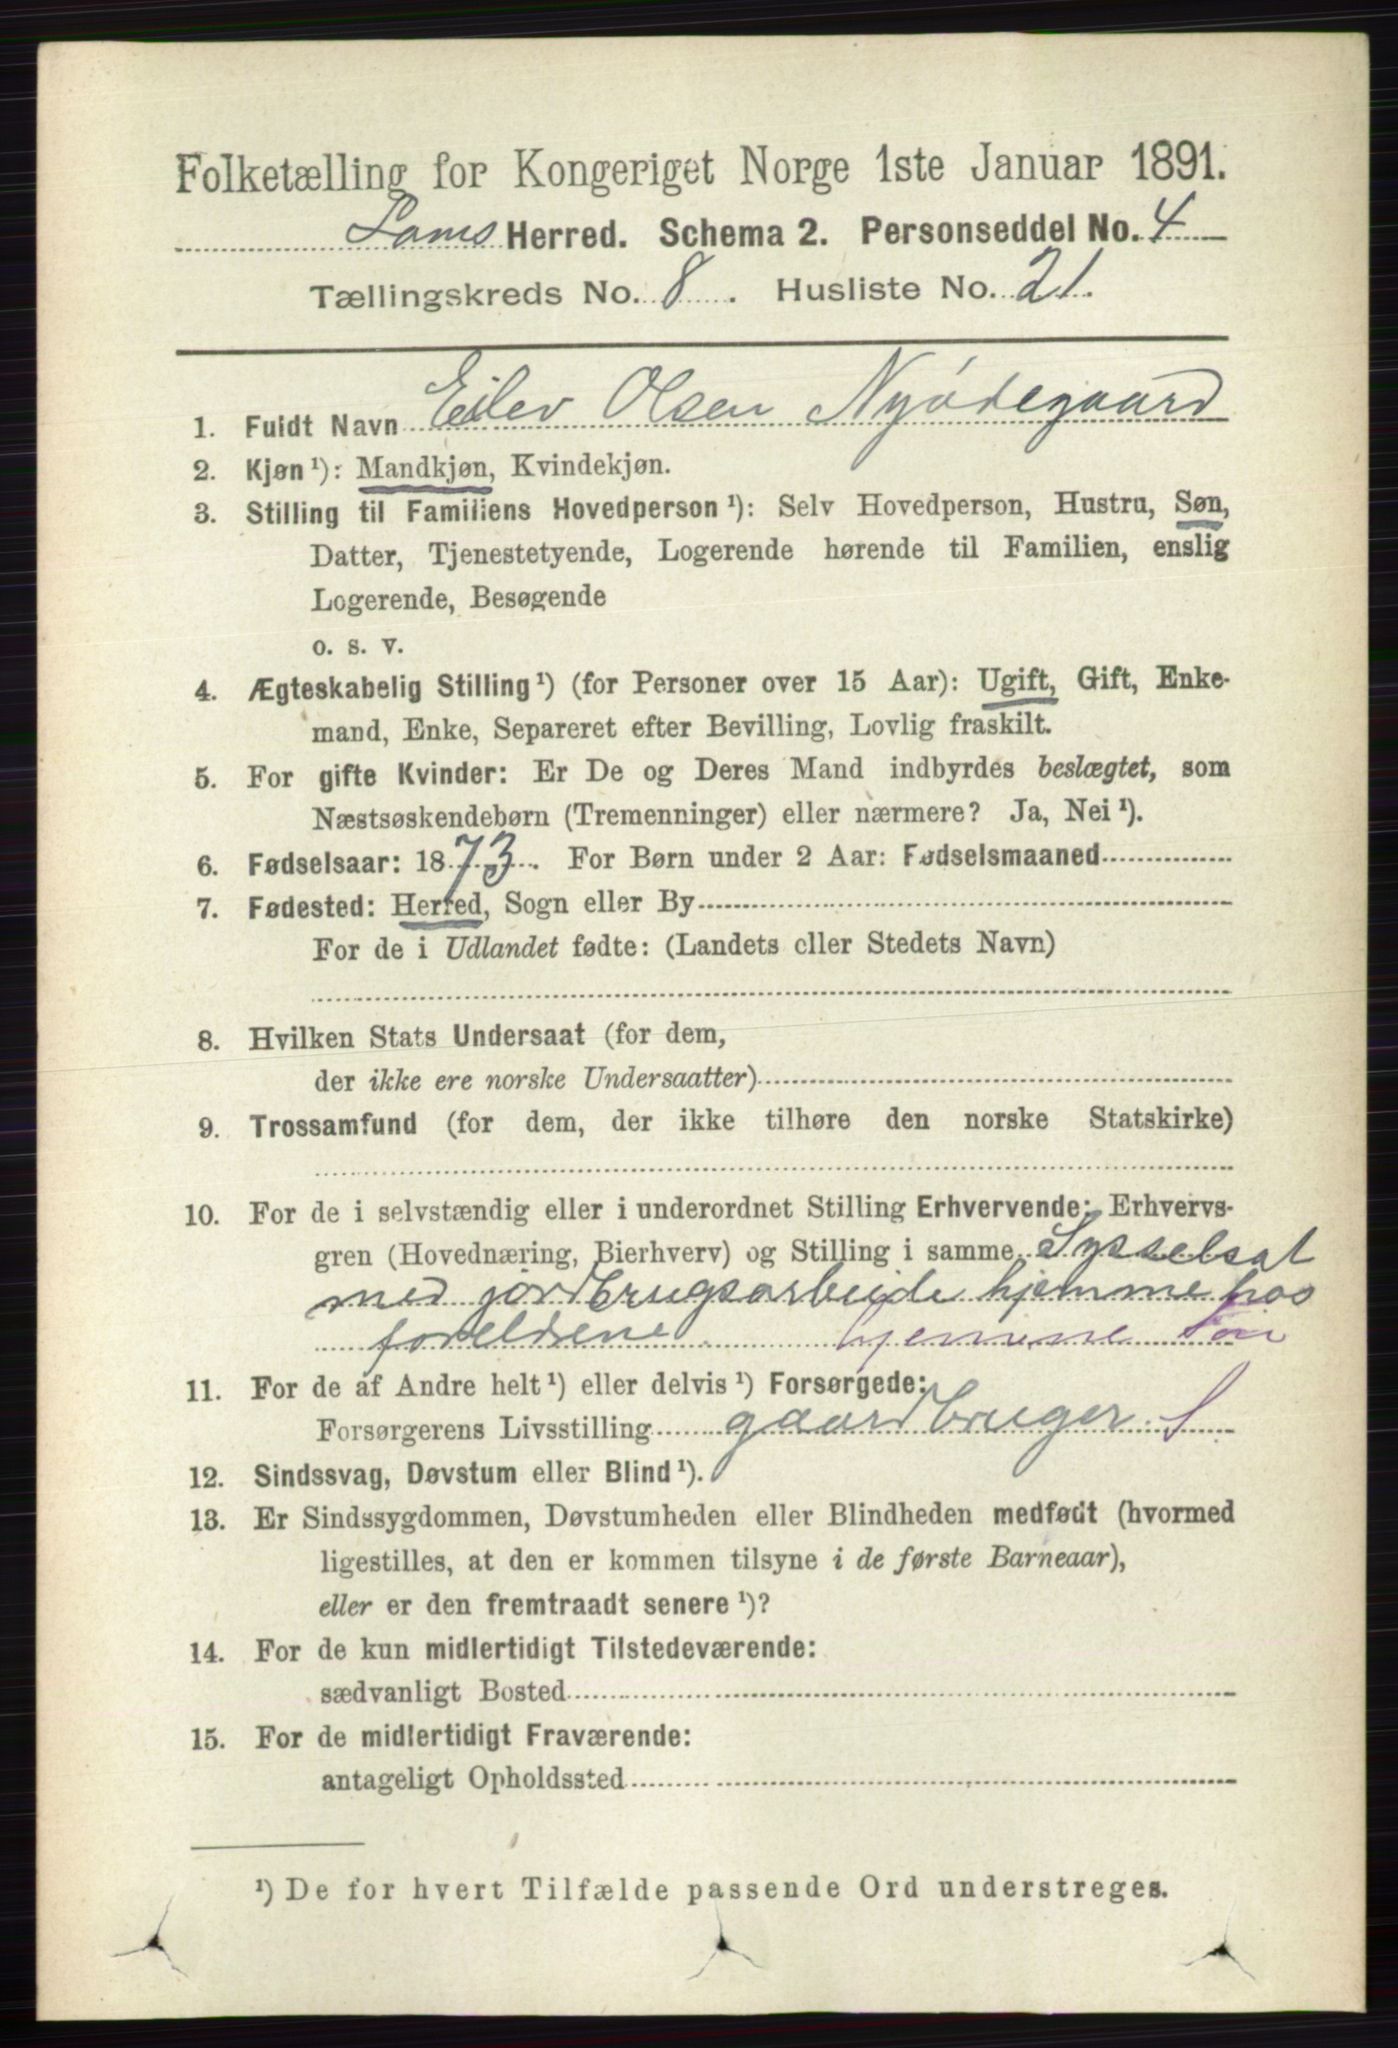 Folketælling for Kongeriget Norge 1ste Januar 1891.
Loms Herred. Schema 2. Personseddel No. 4
Tællingskreds No. 8. Husliste No. 21.
1. Fuldt Navn Eilev Olsen Nyødegaard
2. Kjøn¹): Mandkjøn, Kvindekjøn.
3. Stilling til Familiens Hovedperson¹): Selv Hovedperson, Hustru, Søn,
Datter, Tjenestetyende, Logerende hørende til Familien, enslig
Logerende, Besøgende
o. s. v.
4. Ægteskabelig Stilling¹) (for Personer over 15 Aar): Ugift, Gift, Enke-
mand, Enke, Separeret efter Bevilling, Lovlig fraskilt.
5. For gifte Kvinder: Er De og Deres Mand indbyrdes beslægtet, som
Næstsøskendebørn (Tremenninger) eller nærmere? Ja, Nei¹).
6. Fødselsaar: 1873. For Børn under 2 Aar: Fødselsmaaned
7. Fødested: Herred, Sogn eller By
For de i Udlandet fødte: (Landets eller Stedets Navn)
8. Hvilken Stats Undersaat (for dem,
der ikke ere norske Undersaatter)
9. Trossamfund (for dem, der ikke tilhøre den norske Statskirke)
10. For de i selvstændig eller i underordnet Stilling Erhvervende: Erhvervs-
gren (Hovednæring, Bierhverv) og Stilling i samme Sysselsat
med jordbrugsarbeide hjemme hos
foreldrene hjemme Søn
11. For de af Andre helt¹) eller delvis¹) Forsørgede:
Forsørgerens Livsstilling gaardbruger S
12. Sindssvag, Døvstum eller Blind¹).
13. Er Sindssygdommen, Døvstumheden eller Blindheden medfødt (hvormed
ligestilles, at den er kommen tilsyne i de første Barneaar),
eller er den fremtraadt senere¹)?
14. For de kun midlertidigt Tilstedeværende:
sædvanligt Bosted
15. For de midlertidigt Fraværende:
antageligt Opholdssted
¹) De for hvert Tilfælde passende Ord understreges.